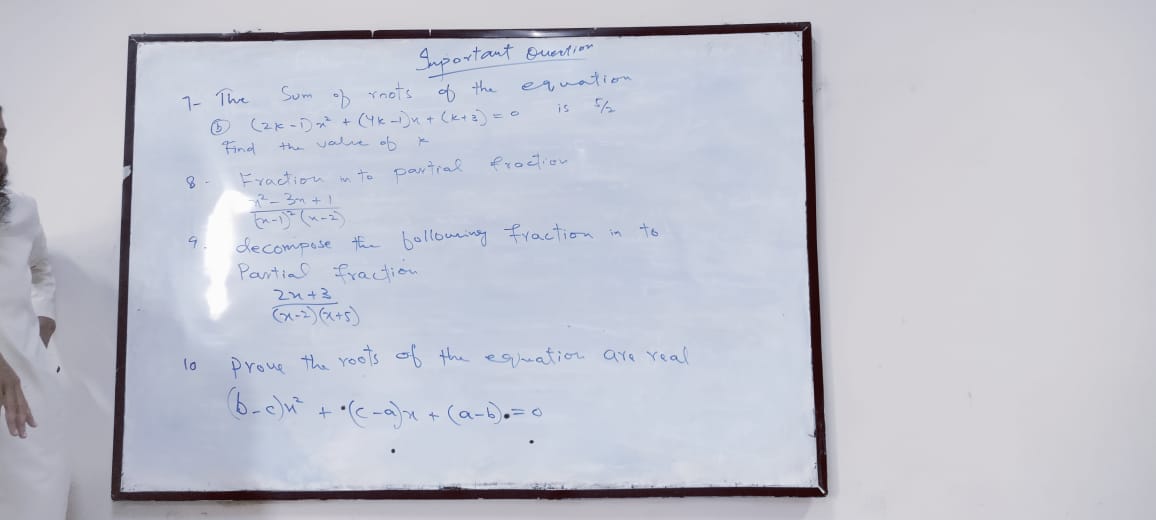 Important Question
7- The Sum of roots of the equation
(b) (2k-1)x² + (4k-1)x + (k+3) = 0 is 5/2
Find the value of k
8- Fraction in to partial fraction
x² - 3x + 1
(x-1)² (x-2)
9. decompose the following fraction in to
Partial fraction
2x+3
(x-2)(x+5)
10 Prove the roots of the equation are real
(b-c)x² + (c-a)x + (a-b) = 0